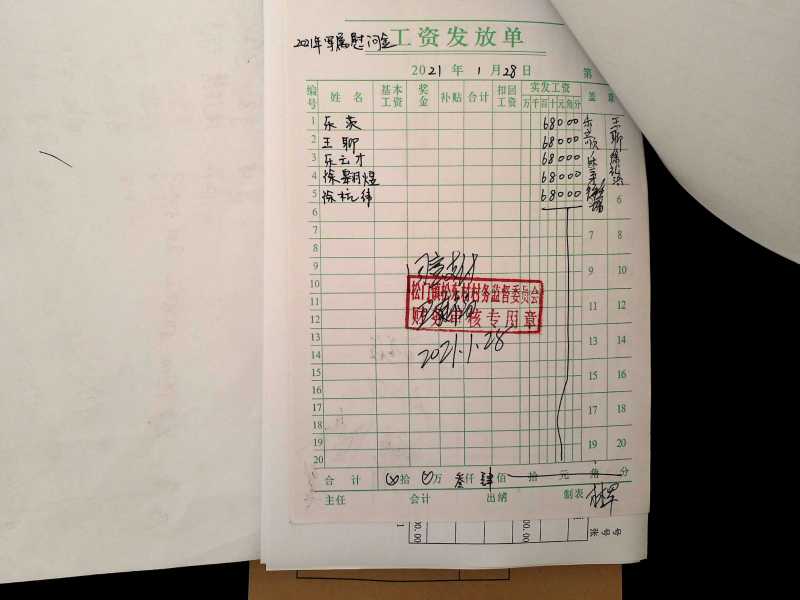 2021年军属慰问金 工资发放单
2021年 1月28日 第
编号 姓名 基本工资 奖金 补贴 合计 扣回工资 实发工资 盖章
万 千 百 十 元 角 分
1 68000
2 王聊 68000
3 68000
4 68000
5 徐杭纬 68000
6 6
7 7 8
8
9 9 10
10
11 11 12
12
13 13 14
14
15 15 16
16
17 17 18
18
19 19 20
20
松门镇松东村村务监督委员会
财务审核专用章
2021.1.28
合计 拾 万 叁仟 肆佰 拾 元 角 分
主任 会计 出纳 制表